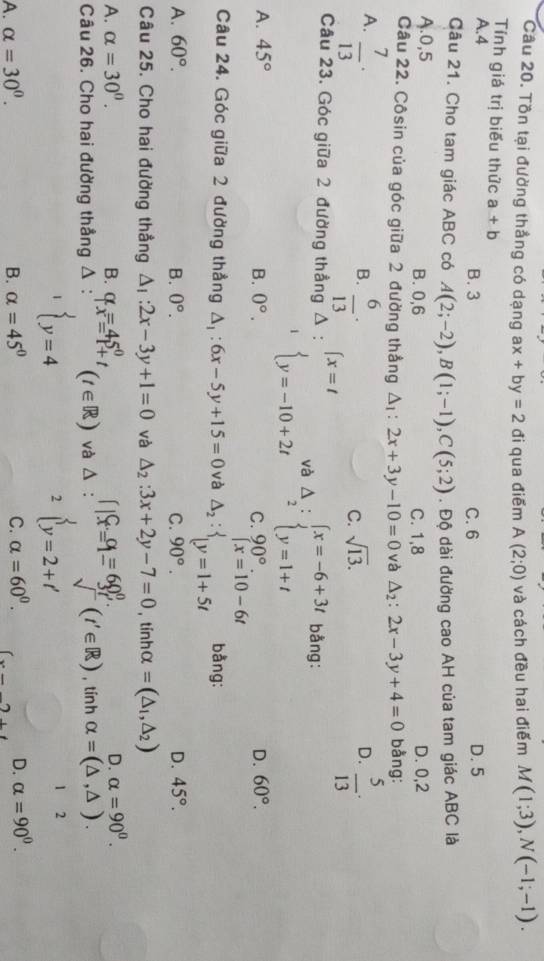 Câu 20. Tồn tại đường thẳng có dạng ax + by = 2 đi qua điểm A (2;0) và cách đều hai điểm M(1;3), N(-1;-1).
Tính giá trị biểu thức a + b
A.4 B. 3 C. 6 D. 5
Câu 21. Cho tam giác ABC có A(2;-2), B(1;-1), C(5;2). Độ dài đường cao AH của tam giác ABC là
A.0,5 B. 0,6 C. 1,8 D. 0,2
Câu 22. Côsin của góc giữa 2 đường thẳng Δ₁: 2x + 3y - 10 = 0 và Δ₂: 2x - 3y + 4 = 0 bằng:
A. 7/13. B. 6/13. C. √13. D. 5/13.
Câu 23. Góc giữa 2 đường thẳng Δ₁: { x = t ; y = -10 + 2t và Δ₂: { x = -6 + 3t ; y = 1 + t bằng:
A. 45°. B. 0°. C. 90°. D. 60°.
Câu 24. Góc giữa 2 đường thẳng Δ₁: 6x - 5y + 15 = 0 và Δ₂: { x = 10 - 6t ; y = 1 + 5t bằng:
A. 60°. B. 0°. C. 90°. D. 45°.
Câu 25. Cho hai đường thẳng Δ₁: 2x - 3y + 1 = 0 và Δ₂: 3x + 2y - 7 = 0, tính α = (Δ₁, Δ₂)
A. α = 30⁰. B. α = 45⁰ C. α = 60⁰. D. α = 90⁰.
Câu 26. Cho hai đường thẳng Δ₁: { x = 1 + t ; y = 4 (t ∈ ℝ) và Δ₂: { x = 1 - √3t'. ; y = 2 + t' (t' ∈ ℝ), tính α = (Δ₁, Δ₂).
A. α = 30⁰. B. α = 45⁰ C. α = 60⁰. D. α = 90⁰.